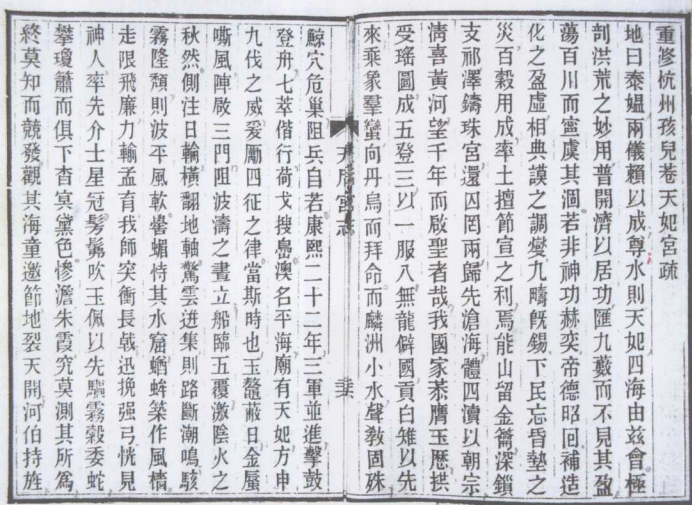 重修杭州孩兒巷天妃宮疏
地曰泰媼兩儀賴以成尊水則天妃四海由兹會極
剖洪荒之妙用普開濟以居功匯九藪而不見其盈
蕩百川而寧虞其涸若非神功赫奕帝德昭回補造
化之盈虛相典謨之調燮九疇旣錫下民忘昏墊之
災百穀用成率土擅節宣之利焉能山留金簡深鎖
支祁澤鑄珠宮還囚罔兩歸先滄海體四瀆以朝宗
淸喜黃河望千年而啟聖者哉我國家恭膺玉歷拱
受瑤圖成五登三以一服八無龍僻國貢白雉以先
來乘象羣蠻向丹鳥而拜命而麟洲小水聲敎固殊
天后宮志
鯨穴危巢阻兵自若康熙二十二年三軍並進擊鼓
登舟七萃偕行荷戈搜島澳名平海廟有天妃方申
九伐之威爰勵四征之律當斯時也玉鼇蔽日金蜃
嘶風陣啟三門阻波濤之晝立船臨五覆激陰火之
秋然側注日輪橫翻地軸驚雲迸集則路斷潮鳴駭
霧隆頹則波平風軟礐蝞恃其水窟蝤蛑築作風檣
走限飛廉力輸孟育我師突衝長戟迅挽强弓恍見
神人率先介士星冠髣髴吹玉佩以先驅霧縠委蛇
攀瓊簫而俱下杳冥黛色慘澹朱霞究莫測其所爲
終莫知而競發觀其海童邀節地裂天開河伯持旌